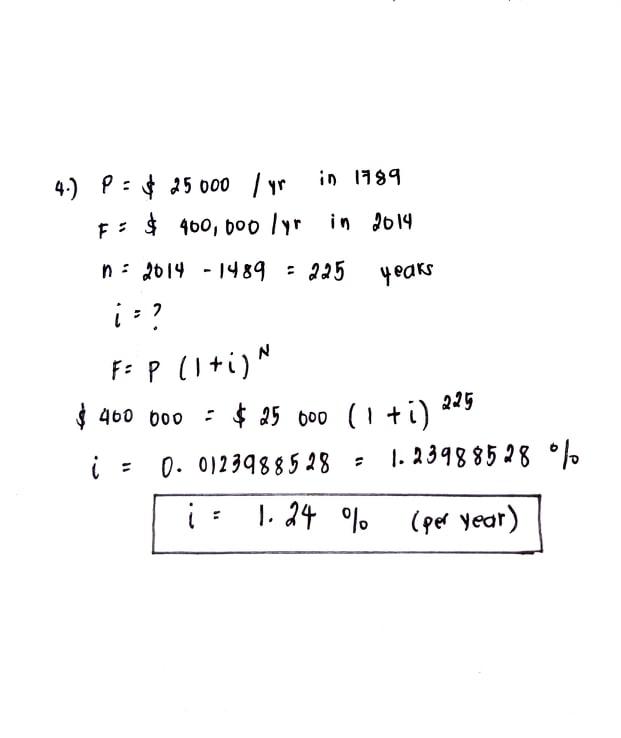 4.) P = $ 25 000 / yr in 1789
F = $ 400,000 / yr in 2014
n = 2014 - 1489 = 225 years
i = ?
F = P (1 + i)^N
$ 400 000 = $ 25 000 (1 + i)^225
i = 0.0123988528 = 1.23988528 %
i = 1.24 % (per year)